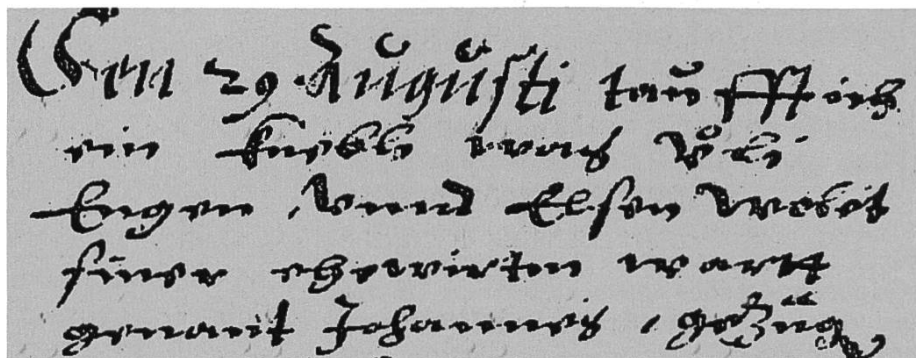 Den 29 Augusti taufft ich
ein knebli was Uͦli
Engen, vnnd Elsen Webet
siner ehewirten wartt
genant Johannes, gezüg